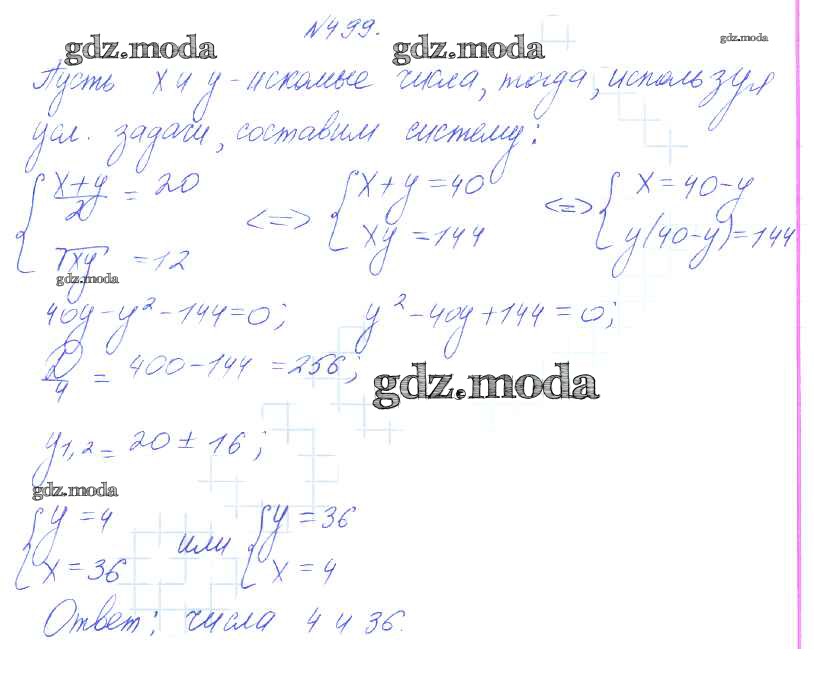 №499.
gdz.moda gdz.moda gdz.moda
Пусть x и y - искомые числа, тогда, используя
усл. задачи, составим систему:
{ (x+y)/2 = 20 <=> { x+y=40 <=> { x=40-y
√xy =12 xy=144 y(40-y)=144
gdz.moda
40y-y²-144=0; y²-40y+144=0;
D/4 = 400-144=256;
gdz.moda
y1,2=20±16;
gdz.moda
{ y=4 или { y=36
x=36 x=4
Ответ: числа 4 и 36.